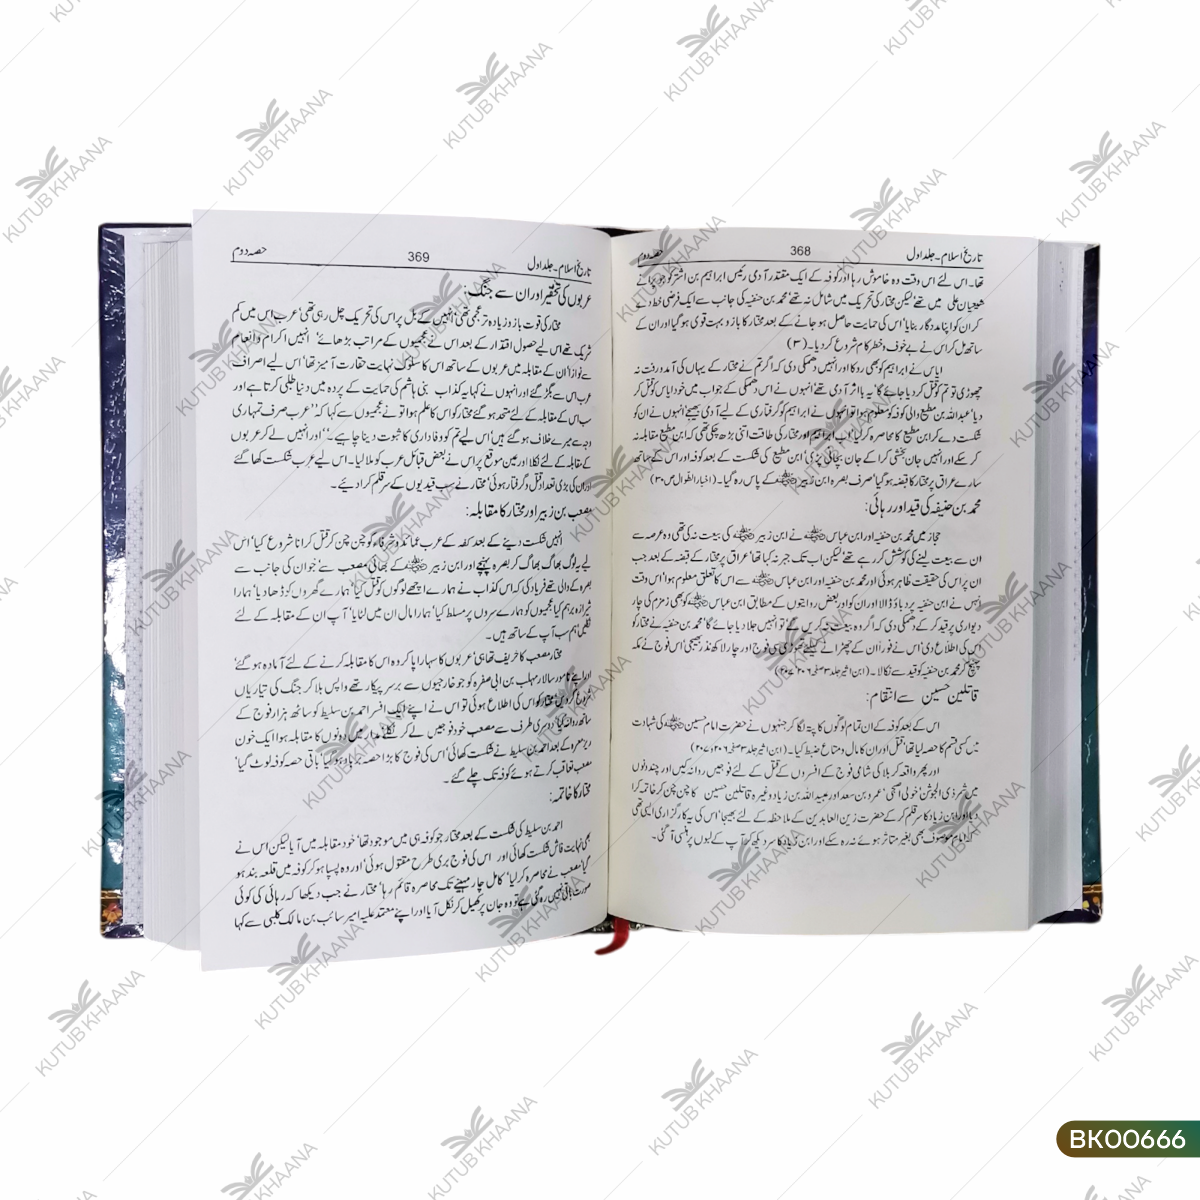 تاریخ اسلام۔ جلد اول
368
حصہ دوم
تھا۔ اس لئے اس وقت وہ خاموش رہا اور کوفہ کے ایک مقتدر آدمی رئیس ابراہیم بن اشتر کو جو بڑے
شیعیان علی میں تھے لیکن مختار کی تحریک میں شامل نہ تھے محمد بن حنفیہ کی جانب سے ایک فرضی خط دے
کر ان کو اپنا مددگار بنایا' اس کی حمایت حاصل ہو جانے کے بعد مختار کا بازو بہت قوی ہو گیا اور ان کے
ساتھ مل کر اس نے بے خوف و خطر کام شروع کر دیا۔ (۳)
ایاس نے ابراہیم کو بھی روکا اور انہیں دھمکی دی کہ اگر تم نے مختار کے یہاں کی آمد و رفت نہ
چھوڑی تو تم کو قتل کر دیا جائے گا' یہ بااثر آدمی تھے انہوں نے اس دھمکی کے جواب میں خود ایاس کو قتل کر
دیا' عبداللہ بن مطیع والی کوفہ کو معلوم ہوا تو انہوں نے ابراہیم کو گرفتاری کے لیے آدمی بھیجے انہوں نے ان کو
شکست دے کر ابن مطیع کا محاصرہ کر لیا' اب ابراہیم اور مختار کی طاقت اتنی بڑھ چکی تھی کہ ابن مطیع مقابلہ نہ
کر سکے اور انہیں جان بخشی کرا کے جان بچانی پڑی' ابن مطیع کی شکست کے بعد کوفہ اور اس کے ساتھ
سارے عراق پر مختار کا قبضہ ہو گیا' صرف بصرہ ابن زبیر کے پاس رہ گیا۔ (اخبار الطوال ص۳۰)
محمد بن حنفیہ کی قید اور رہائی:
حجاز میں محمد بن حنفیہ اور ابن عباس نے ابن زبیر کی بیعت نہ کی تھی وہ عرصہ سے
ان سے بیعت لینے کی کوشش کر رہے تھے لیکن اب تک جبر نہ کیا تھا' عراق پر مختار کے قبضہ کے بعد جب
ان پر اس کی حقیقت ظاہر ہوئی اور محمد بن حنفیہ اور ابن عباس سے اس کا تعلق معلوم ہوا' اس وقت
انہیں نے ابن حنفیہ پر دباؤ ڈالا اور ان کو اور بعض روایتوں کے مطابق ابن عباس کو بھی زمزم کی چار
دیواری پر قید کر کے دھمکی دی کہ اگر وہ بیعت نہ کریں گے' تو انہیں جلا دیا جائے گا' محمد بن حنفیہ نے مختار کو
اس کی اطلاع دی' اس نے فوراً ان کے چھڑانے کیلئے تھوڑی سی فوج اور چار لاکھ نذر بھیجی' اس فوج نے مکہ
پہنچ کر محمد بن حنفیہ کو قید سے نکالا۔
قاتلین حسین سے انتقام:
اس کے بعد کوفہ کے ان تمام لوگوں کا پتہ لگا کر جنہوں نے حضرت امام حسین کی شہادت
میں کسی قسم کا حصہ لیا تھا' قتل اور ان کا مال و متاع ضبط کیا۔
اور پھر واقعہ کربلا کی شامی فوج کے افسروں کے قتل کے لئے فوجیں روانہ کیں اور چند دنوں
میں شمر ذی الجوشن' خولی اصبحی' عمرو بن سعد اور عبیداللہ بن زیاد وغیرہ قاتلین حسین کا چن چن کر خاتمہ کرا
دیا' اور ابن زیاد کا سر قلم کر کے حضرت زین العابدین کے ملاحظہ کے لئے بھیجا' اس کی یہ کارگزاری ایسی تھی
کہ امام موصوف بھی بغیر متاثر ہوئے نہ رہ سکے اور ابن زیاد کا سر دیکھ کر آپ کے لبوں پر ہنسی آ گئی۔
تاریخ اسلام۔ جلد اول
369
حصہ دوم
عربوں کی تحقیر اور ان سے جنگ:
مختار کی قوت بازو زیادہ تر عجمی تھی' انہیں کے بل پر اس کی تحریک چل رہی تھی' عرب اس میں کم
شریک تھے اس لیے حصول اقتدار کے بعد اس نے عجمیوں کے مراتب بڑھائے' انہیں اکرام و انعام
سے نوازا' ان کے مقابلہ میں عربوں کے ساتھ اس کا سلوک نہایت حقارت آمیز تھا' اس لیے اصراف
عرب اس سے بگڑ گئے اور انہوں نے کہا یہ کذاب بنی ہاشم کی حمایت کے پردہ میں دنیا طلبی کرتا ہے اور
سب اس کے مقابلہ کے لئے متحد ہو گئے مختار کو اس کا علم ہوا تو نے عجمیوں سے کہا کہ ''عرب صرف تمہاری
وجہ سے میرے خلاف ہو گئے ہیں' اس لیے تم کو وفاداری کا ثبوت دینا چاہیے۔'' اور انہیں لے کر عربوں
کے مقابلہ کے لئے نکلا اور عین موقع پر اس نے بعض قبائل عرب کو ملا لیا۔ اس لیے عرب شکست کھا گئے
اور ان کی بڑی تعداد قتل و گرفتار ہوئی' مختار نے سب قیدیوں کے سر قلم کرا دیئے۔
مصعب بن زبیر اور مختار کا مقابلہ:
انہیں شکست دینے کے بعد کفہ کے عرب عمائد و شرفاء کو چن چن کر قتل کرنا شروع کیا' اس
لیے یہ لوگ بھاگ بھاگ کر بصرہ پہنچے اور ابن زبیر کے بھائی مصعب سے' جو ان کی جانب سے
بصرہ کے والی تھے فریاد کی کہ اس کذاب نے ہمارے اچھے لوگوں کو قتل کیا' ہمارے گھروں کو ڈھا دیا' ہمارا
شیرازہ برہم کیا' عجمیوں کو ہمارے سروں پر مسلط کیا' ہمارا مال ان میں لٹایا' آپ ان کے مقابلہ کے لئے
نکلیں' ہم سب آپ کے ساتھ ہیں۔
مختار مصعب کا حریف تھا ہی' عربوں کا سہارا پا کر وہ اس کا مقابلہ کرنے کے لئے آمادہ ہو گئے'
اور اپنے نامور سالار مہلب بن ابی صفرہ کو جو خارجیوں سے برسر پیکار تھے واپس بلا کر جنگ کی تیاریاں
شروع کر دیں' مختار کو اس کی اطلاع ہوئی تو اس نے اپنے ایک افسر احمد بن سلیط کو ساٹھ ہزار فوج کے
ساتھ روانہ کیا' دوسری طرف سے مصعب خود فوجیں لے کر نکلے' مدار میں دونوں کا مقابلہ ہوا' ایک خون
ریز معرکہ کے بعد احمد بن سلیط نے شکست کھائی' اس کی فوج کا بڑا حصہ برباد ہو گیا' باقی حصہ کوفہ لوٹ گیا'
مصعب تعاقب کرتے ہوئے کوفہ تک چلے گئے۔
مختار کا خاتمہ:
احمد بن سلیط کی شکست کے بعد مختار جو کوفہ ہی میں موجود تھا' خود مقابلہ میں آیا لیکن اس نے
بھی نہایت فاش شکست کھائی اور اس کی فوج بری طرح مقتول ہوئی' اور وہ پسپا ہو کر کوفہ میں قلعہ بند ہو
گیا' مصعب نے محاصرہ کر لیا' کامل چار مہینے تک محاصرہ قائم رہا' مختار نے جب دیکھا کہ رہائی کی کوئی
صورت باقی نہیں رہ گئی ہے تو وہ جان پر کھیل کر نکل آیا اور اپنے معتمد علیہ امیر سائب بن مالک کلبی سے کہا
KUTUB KHAANA
BK00666